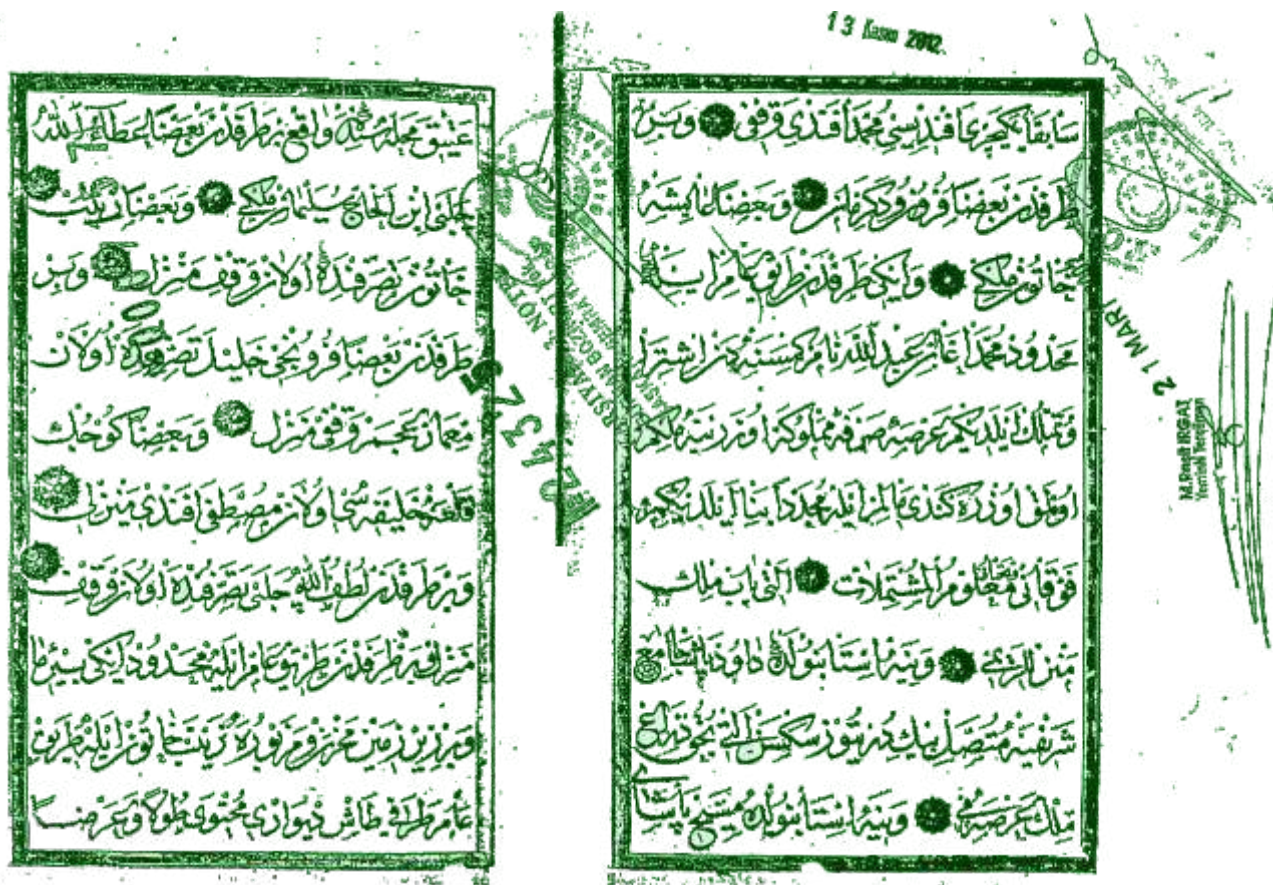 سابقا یکیچری افندیسی محمد افندی وقفی وبر
طرفدن بعضا و بعضا عایشه
خاتون ملکی وایکی طرفدن طریق عام ایله
محدود محمد اغا بن عبد الله نام کمسنه دن اشترا
وتملك ایلدیکم عرصهٔ صرفهٔ مملوکه اوزرینه ملکم
اولمق اوزره کندی مالم ایله مجددا بنا ایلدیکم
فوقانی تحتانی معلوم المشتملات التی باب ملك
منزللری وینه استانبولده داود پاشا جامع
شریفنه متصل بیك درتیوز سکسن التی بچق ذراع
ملك عرصه می وینه استانبولده مسیح پاشای
عتیق محله سنده واقع بر طرفدن بعضا عطاء الله
چلبی ابن الحاج سلیمان ملکی وبعضا زینب
خاتونن تصرفنده اولان وقف منزل وبر
طرفدن بعضا فرونجی خلیلك تصرفنده اولان
معمار عجم وقفی منزل وبعضا کوچك
قلعه خلیفه سی اولان مصطفی افندی منزلی
وبر طرفدن لطف الله چلبی تصرفنده اولان وقف
منزل وبر طرفدن طریق عام ایله محدود ایکی بئر ما
وبر زیرزمین محرز ومزبوره زینب خاتون ایله طریق
عام طرفی طاش دیواری محتوی طولا وعرضا
13 Kasım 2012
21 MART
M.Raşit IRGAT
Yeminli Tercüman